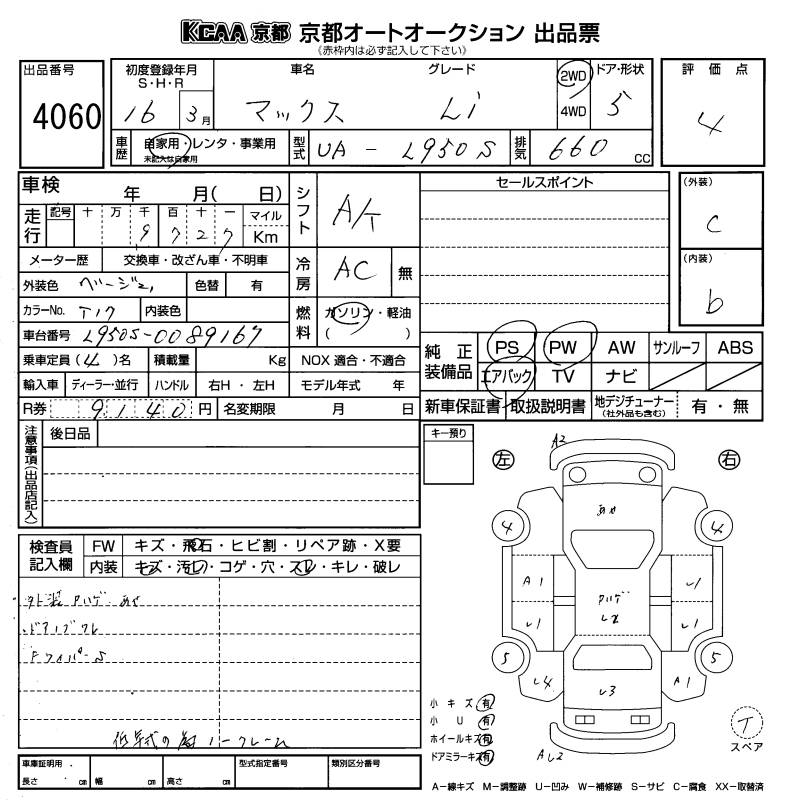 KCAA 京都 京都オートオークション 出品票
(赤枠内は必ず記入して下さい)
出品番号
4060
初度登録年月
S・H・R
16 3月
車名
マックス
グレード
Li
2WD
4WD
ドア・形状
5
評価点
4
車歴
自家用・レンタ・事業用
未記入は自家用
型式
UA-L950S
排気
660 cc
車検 年 月( 日)
走行
記号 十 万 千 百 十 一 マイル
9 7 2 7 Km
シフト
A/T
メーター歴 交換車・改ざん車・不明車
外装色 ベージュ 色替 有
冷房
AC 無
カラーNo. T17 内装色
燃料
ガソリン・軽油
( )
車台番号 L950S-0089167
乗車定員(4)名 積載量 Kg NOX 適合・不適合
輸入車 ディーラー・並行 ハンドル 右H・左H モデル年式 年
R券 9140円 名変期限 月 日
セールスポイント
(外装)
C
(内装)
b
純正装備品
PS PW AW サンルーフ ABS
エアバッグ TV ナビ
新車保証書 取扱説明書 地デジチューナー
(社外品も含む)
有・無
注意事項(出品店記入)
後日品
キー預り
検査員記入欄
FW キズ・飛石・ヒビ割・リペア跡・X要
内装 キズ・汚レ・コゲ・穴・スレ・キレ・破レ
外装ハゲ
ドアノブ
FワイパーS
低年式の為ノークレーム
左 右
A2
4 4
A1 レ1
ハゲ
レ2
レ1 レ1
5 5
レ4 レ3 A1
Aレ2
小キズ 有
小U 有
ホイールキズ 有
ドアミラーキズ 有
T
スペア
車庫証明用
長さ cm 幅 cm 高さ cm
型式指定番号
類別区分番号
A-線キズ M-調整跡 U-凹み W-補修跡 S-サビ C-腐食 XX-取替済